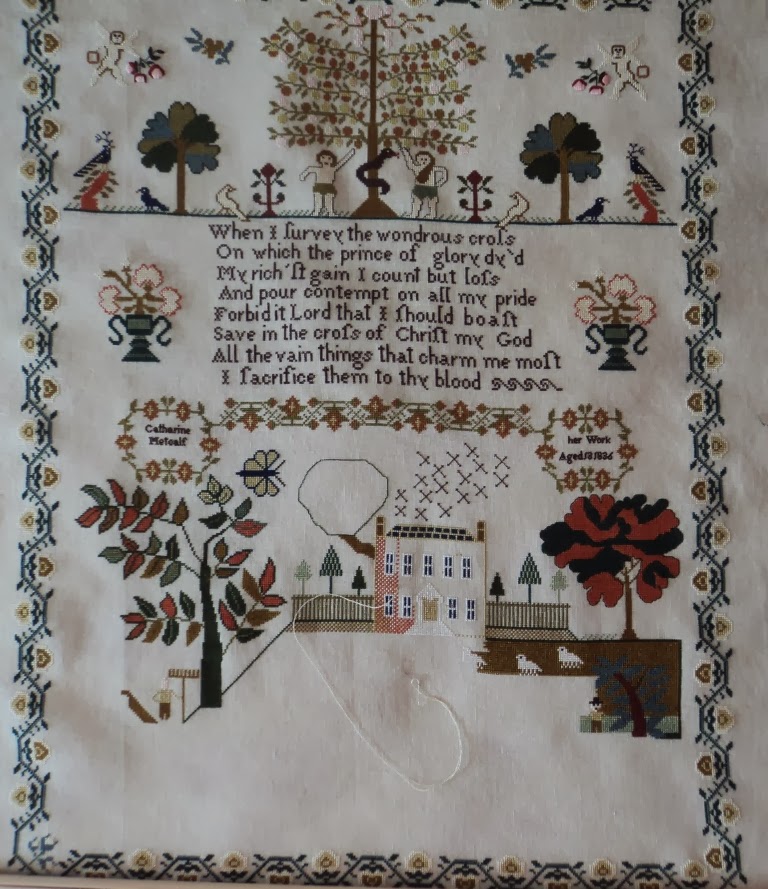 When I ſurvey the wondrous croſs
On which the prince of glory dy'd
My rich'ſt gain I count but loſs
And pour contempt on all my pride
Forbid it Lord that I ſhould boaſt
Save in the croſs of Chriſt my God
All the vain things that charm me moſt
I ſacrifice them to thy blood
Catharine
Metcalf
her Work
Aged 13 1836